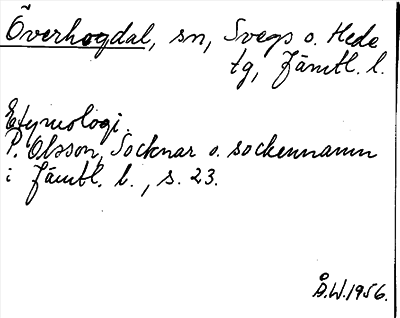 Överhogdal, sn, Svegs o. Hede
tg, Jämtl. l.
Etymologi.
P. Olsson, Socknar o. sockennamn
i Jämtl. l., s. 23.
Å.W. 1956.